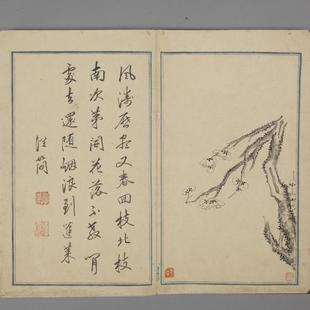 風濤歷盡又春回枝北枝
南次第開花落不教閒
處去還隨烟浪到蓬萊
汪簡